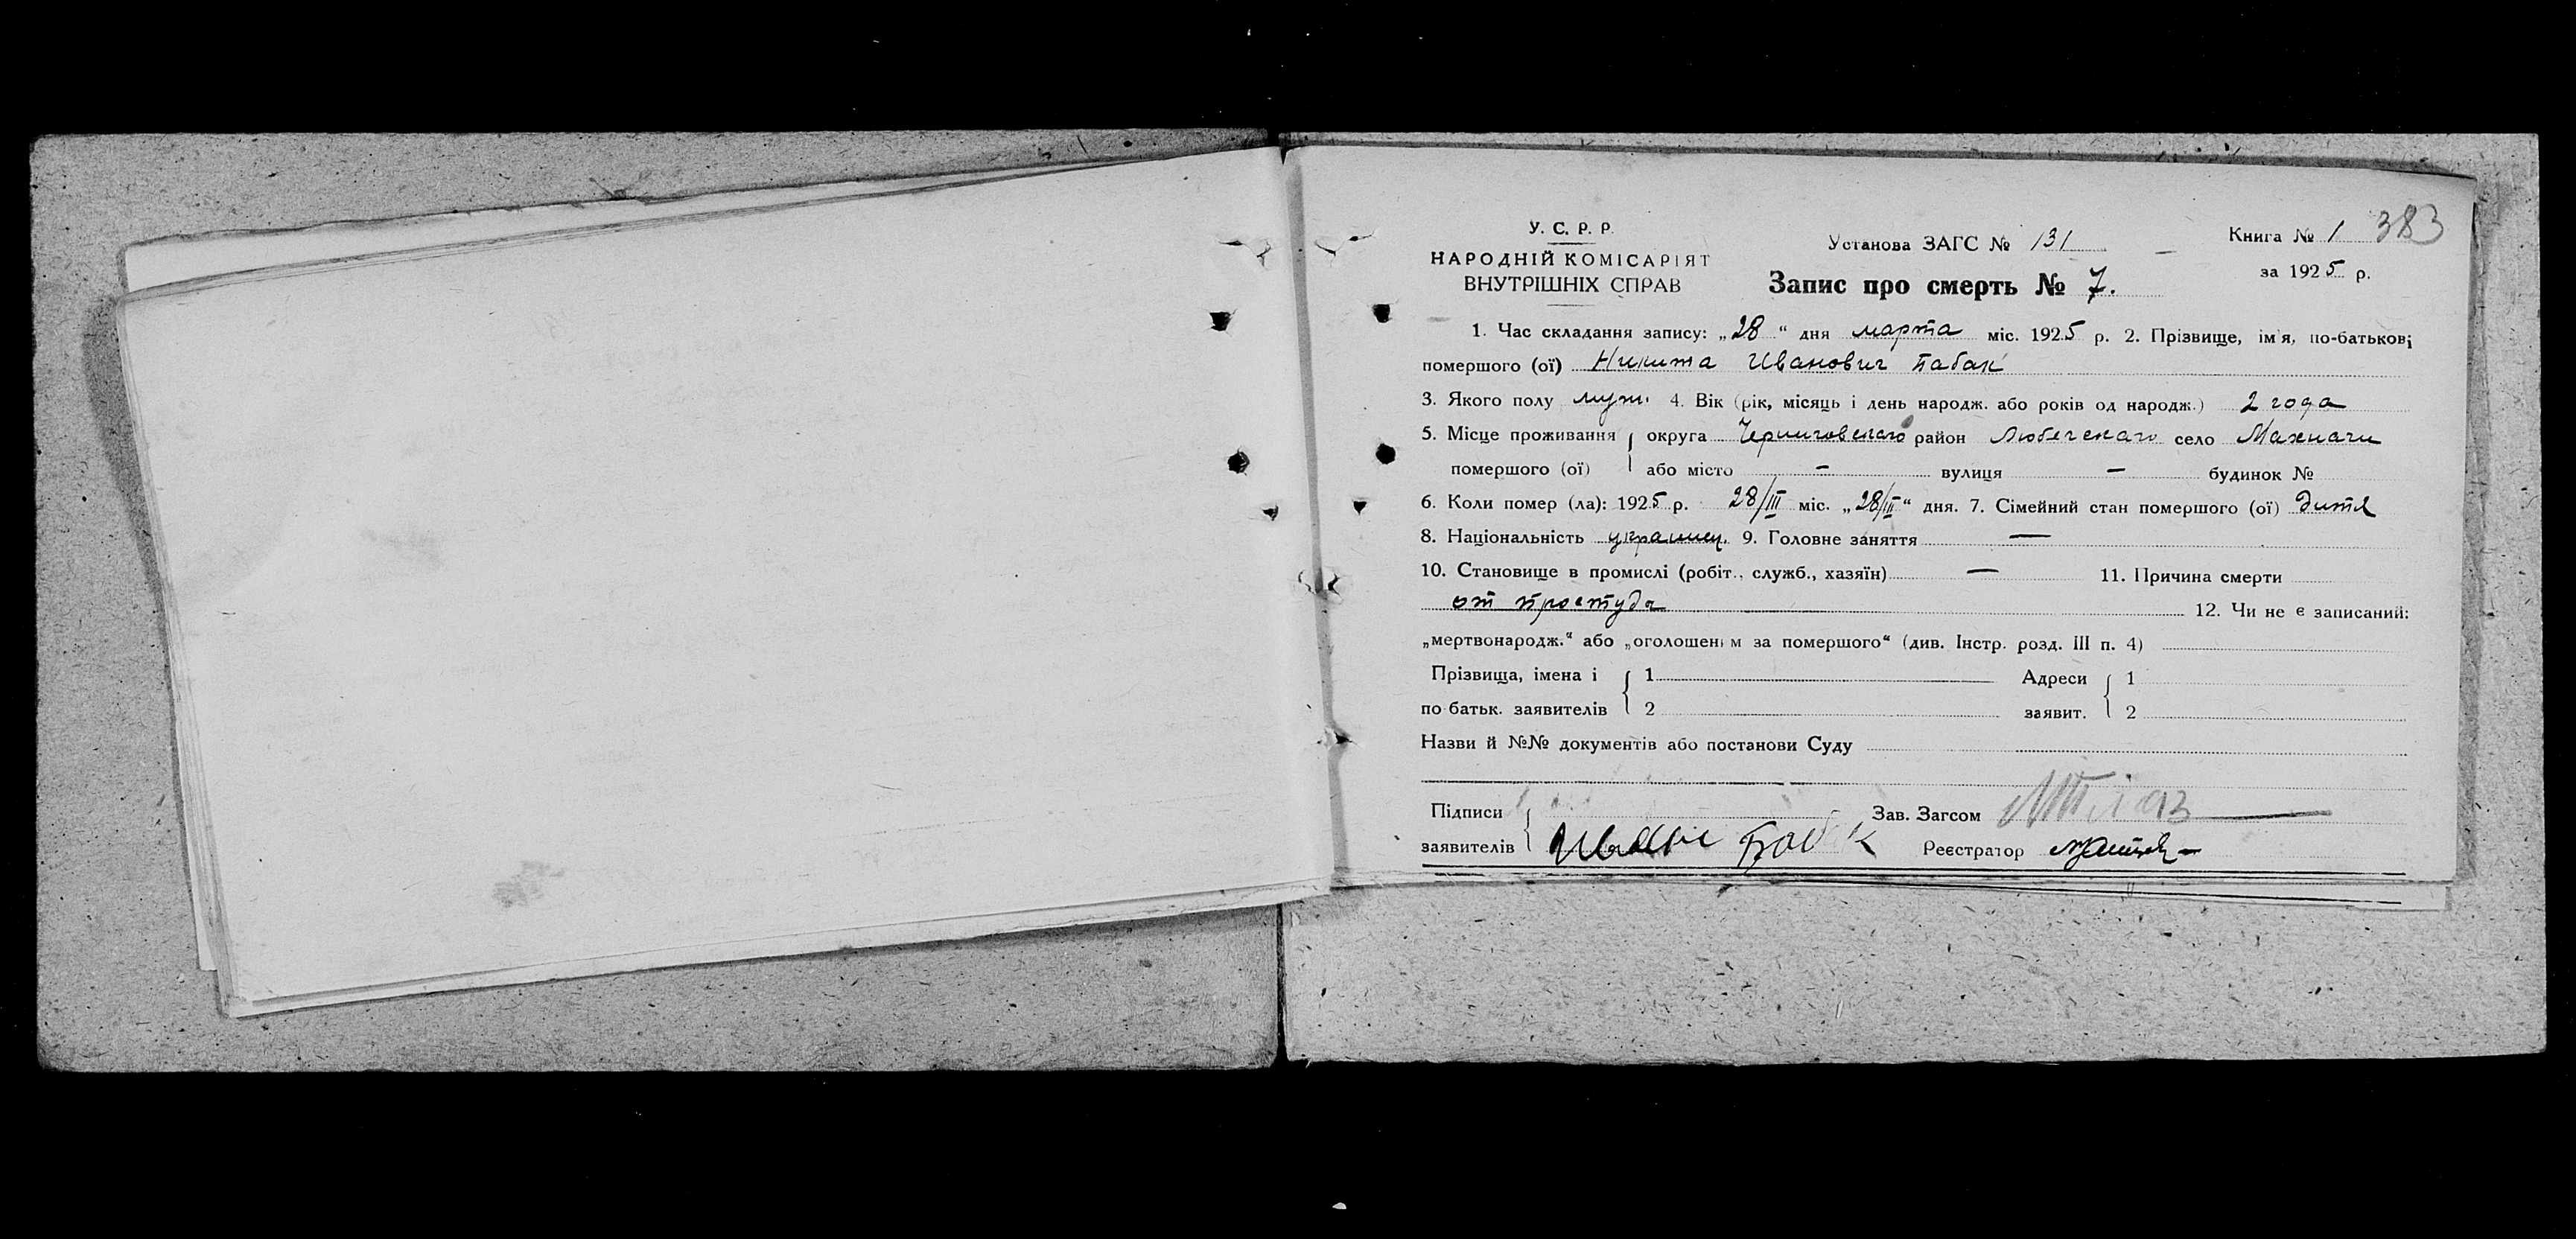 383
У. С. Р. Р.
НАРОДНІЙ КОМІСАРІЯТ
ВНУТРІШНІХ СПРАВ
Установа ЗАГС № 131
Книга № 1
за 1925 р.
Запис про смерть № 7.
1. Час складання запису: „28“ дня марта міс. 1925 р. 2. Прізвище, ім'я, по-батькові
помершого (ої) Никита Иванович Бабак
3. Якого полу муж. 4. Вік (рік, місяць і день народж. або років од народж.) 2 года
5. Місце проживання { округа Черниговскаго район Любечскаго село Махначи
помершого (ої) або місто — вулиця — будинок №
6. Коли помер (ла): 1925 р. 28/III міс. „28/III“ дня. 7. Сімейний стан помершого (ої) дитя
8. Національність украинец. 9. Головне заняття —
10. Становище в промислі (робіт., служб., хазяїн) — 11. Причина смерти
от простуды 12. Чи не є записаний:
„мертвонародж.“ або „оголошеним за помершого“ (див. Інстр. розд. III п. 4)
Прізвища, імена і { 1 Адреси { 1
по батьк. заявителів 2 заявит. 2
Назви й №№ документів або постанови Суду
Підписи Зав. Загсом
заявителів Иван Бабак Реєстратор